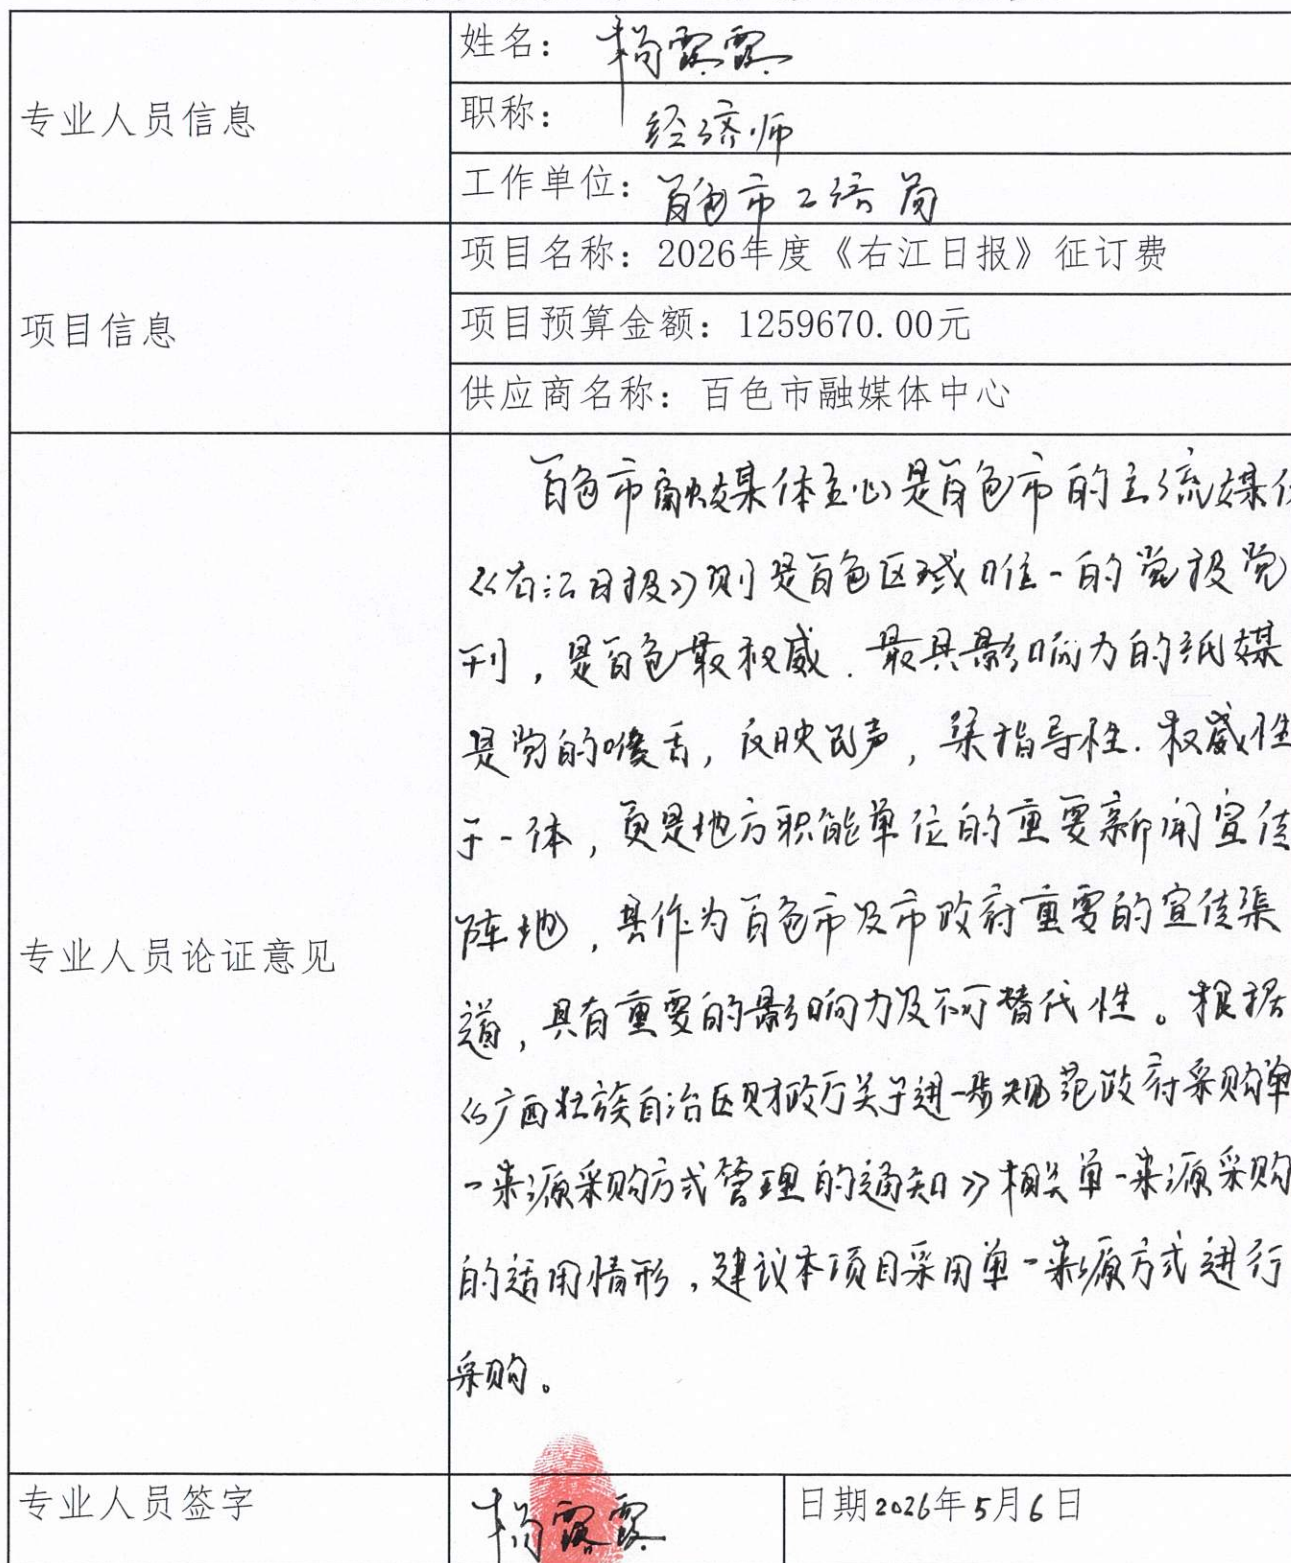 专业人员信息
姓名：杨霞霞
职称：经济师
工作单位：百色市工信局
项目信息
项目名称：2026年度《右江日报》征订费
项目预算金额：1259670.00元
供应商名称：百色市融媒体中心
专业人员论证意见
百色市融媒体中心是百色市的主流媒体
《右江日报》则是百色区域唯一的党报党
刊，是百色最权威．最具影响力的纸媒
是党的喉舌，反映民声，集指导性．权威性
于一体，更是地方职能单位的重要新闻宣传
阵地，其作为百色市及市政府重要的宣传渠
道，具有重要的影响力及不可替代性。根据
《广西壮族自治区财政厅关于进一步规范政府采购单
一来源采购方式管理的通知》相关单一来源采购
的适用情形，建议本项目采用单一来源方式进行
采购。
专业人员签字
杨霞霞
日期2026年5月6日